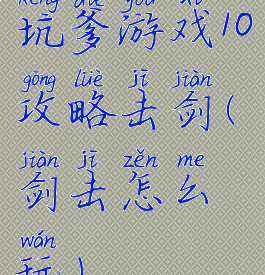 kēng diē yóu xì
坑爹游戏10
gōng lüè jī jiàn
攻略击剑(
jiàn jī zěn me
剑击怎么
wán
玩)